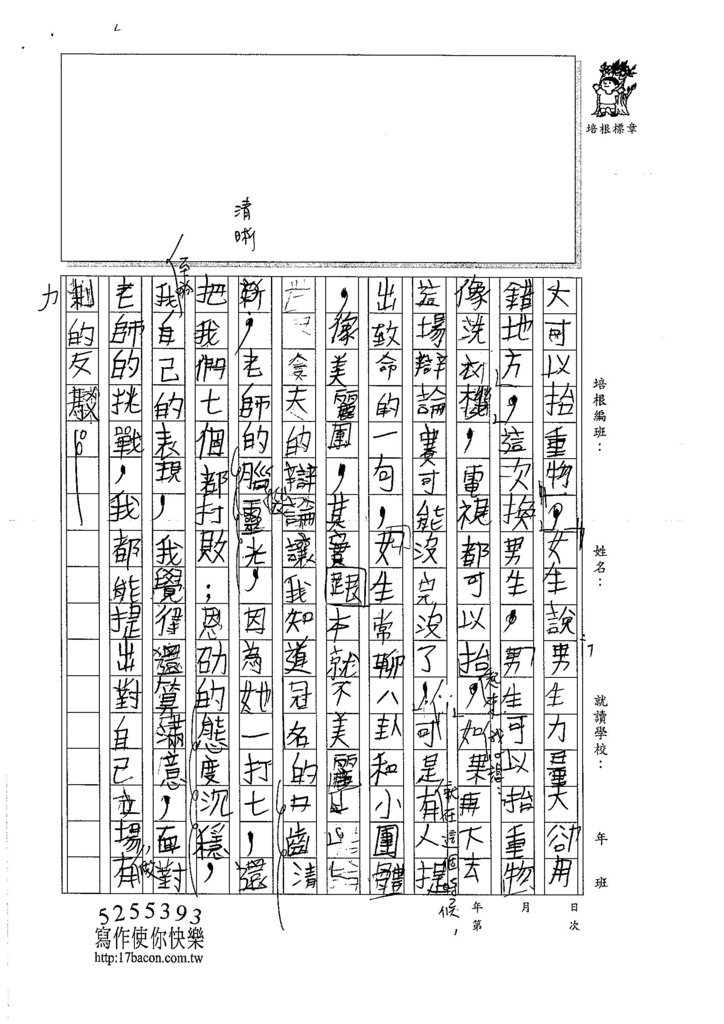 大可以抬重物。女生說：男生力量大卻用
錯地方，這次換男生，男生可以抬重物
像洗衣機，電視都可以抬，如果再大去
這場辯論賽可能沒完沒了，可是有人提
出致命的一句，女生常聊八卦和小團體
，像美麗團，其實跟本就不美麗
夫的辯論讓我知道冠名的口齒清
晰，老師的腦靈光，因為她一打七，還
把我們七個都打敗；恩劭的態度沉穩，
我自己的表現，我覺得還算滿意，面對
老師的挑戰，我都能提出對自己立場有
利的反駁。
清晰
至於
機
起來我心想：
就在這個時候，
做
力
培根標章
培根編班：
姓名：
就讀學校：
年 班
年 月 日
第 次
5255393
寫作使你快樂
http:17bacon.com.tw